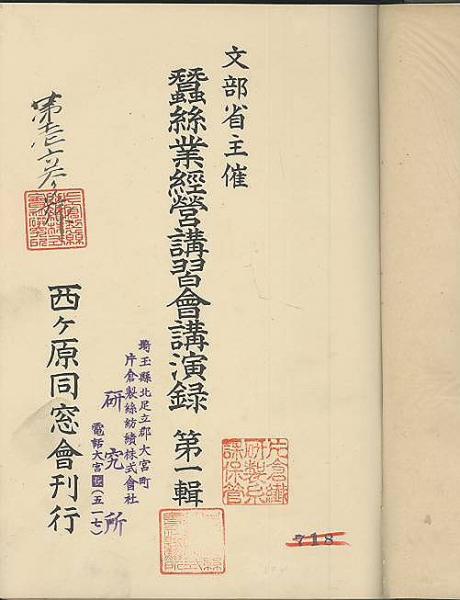 文部省主催
蠶絲業經營講習會講演録 第一輯
埼玉縣北足立郡大宮町
片倉製絲紡績株式會社
研究所
電話大宮 (五一七)
西ヶ原同窓會刊行
片倉繊
研製糸
課保管
718